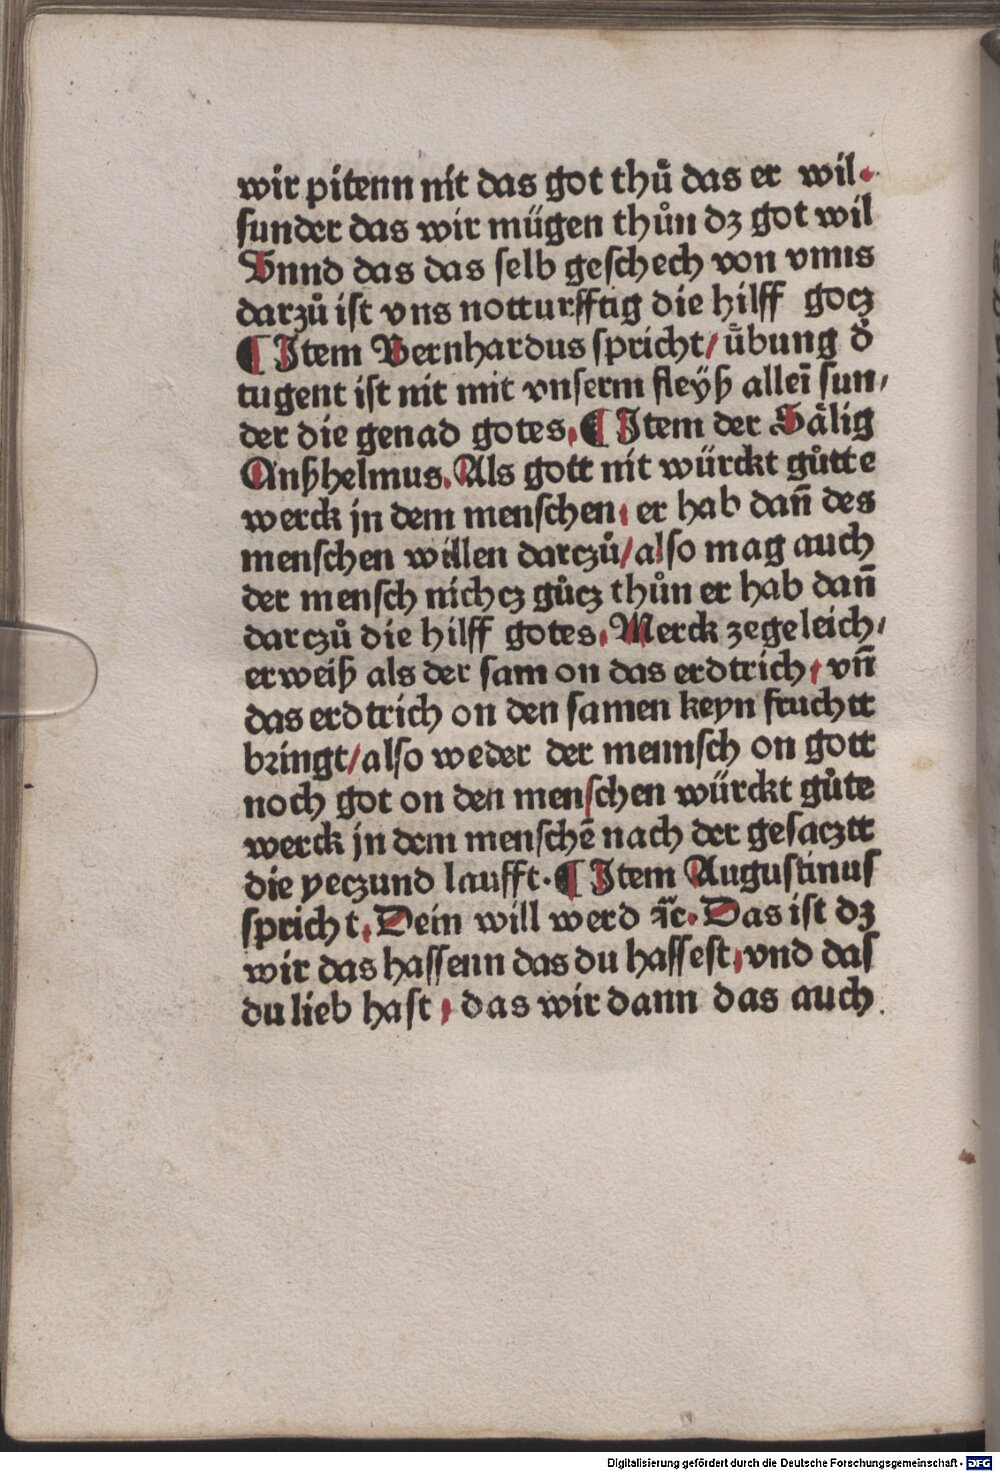 wir pitenn nit das got thuͦ das er wil.
ſunder das wir mügen thuͦn dꝫ got wil
Vnnd das das ſelb geſchech von vnns
darzuͦ iſt vns notturfftig die hilff gocz
¶ Item Bernhardus ſpricht/ uͤbung dˀ
tugent iſt nit mit vnſerm fleyß alleī ſun/
der die genad gotes. ¶ Item der Saͤlig
Anßhelmus. Als gott nit würckt guͦtte
werck jn dem menſchen. er hab dañ des
menſchen willen darczuͦ/ alſo mag auch
der menſch nichcz guͦcz thuͦn er hab dañ
darczuͦ die hilff gotes. Merck zegeleich/
erweiß als der ſam on das erdtrich/ vñ
das erdtrich on den ſamen keyn fruchtt
bꝛingt/ alſo weder der mennſch on gott
noch got on den menſchen würckt guͦte
werck jn dem menſchē nach der geſacztt
die yeczund laufft. ¶ Item Auguſtinuſ
ſpricht. Dein will werd ꝛc̄. Das iſt dꝫ
wir das haſſenn das du haſſeſt, vnd daſ
du lieb haſt, das wir dann das auch.
Digitalisierung gefördert durch die Deutsche Forschungsgemeinschaft - DFG